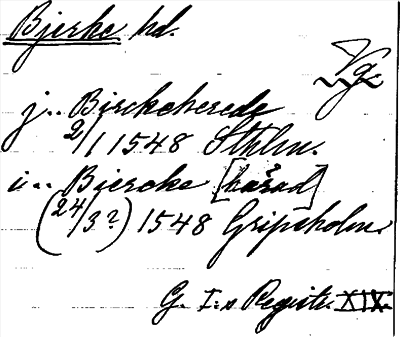 Bjerke hd.
Vg.
j.. Birckeherede
2/1 1548 Sthlm.
u.. Biercke [härad]
(24/3?) 1548 Gripsholm.
G. I:s Registr. XIX.